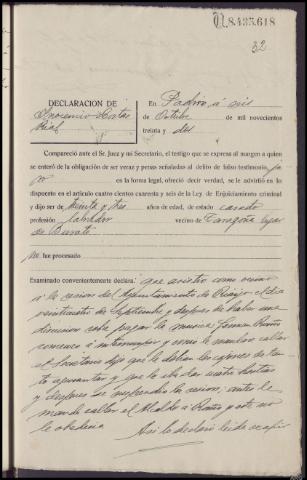 N.8.435.618
32
DECLARACION DE
Inocencio Costas
Rial
En Padrón, a seis
de Octubre de mil novecientos
treinta y dos
Compareció ante el Sr. Juez y mi Secretario, el testigo que se expresa al margen a quien
se enteró de la obligación de ser veraz y penas señaladas al delito de falso testimonio,
es en la forma legal, ofreció decir verdad, se le advirtió en lo
dispuesto en el artículo cuatro cientos cuarenta y seis de la Ley de Enjuiciamiento criminal
y dijo ser de treinta y tres años de edad, de estado casado
profesión labrador vecino de Taragoña lugar
de Burato
no fue procesado
Examinado convenientemente declara: que asistió como
a la sesión del Ayuntamiento de Rianjo el día
veinticuatro de Septiembre y después de haber una
discusión sobre pagar la música
comenzó a interrumpir y como le mandase callar
el Secretario dijo que le daban los cojones de
aguantar y que le
y después se suspendió la sesión, ante le
mandó callar el Alcalde a y este no
le obedecía
Así lo declaró leída se